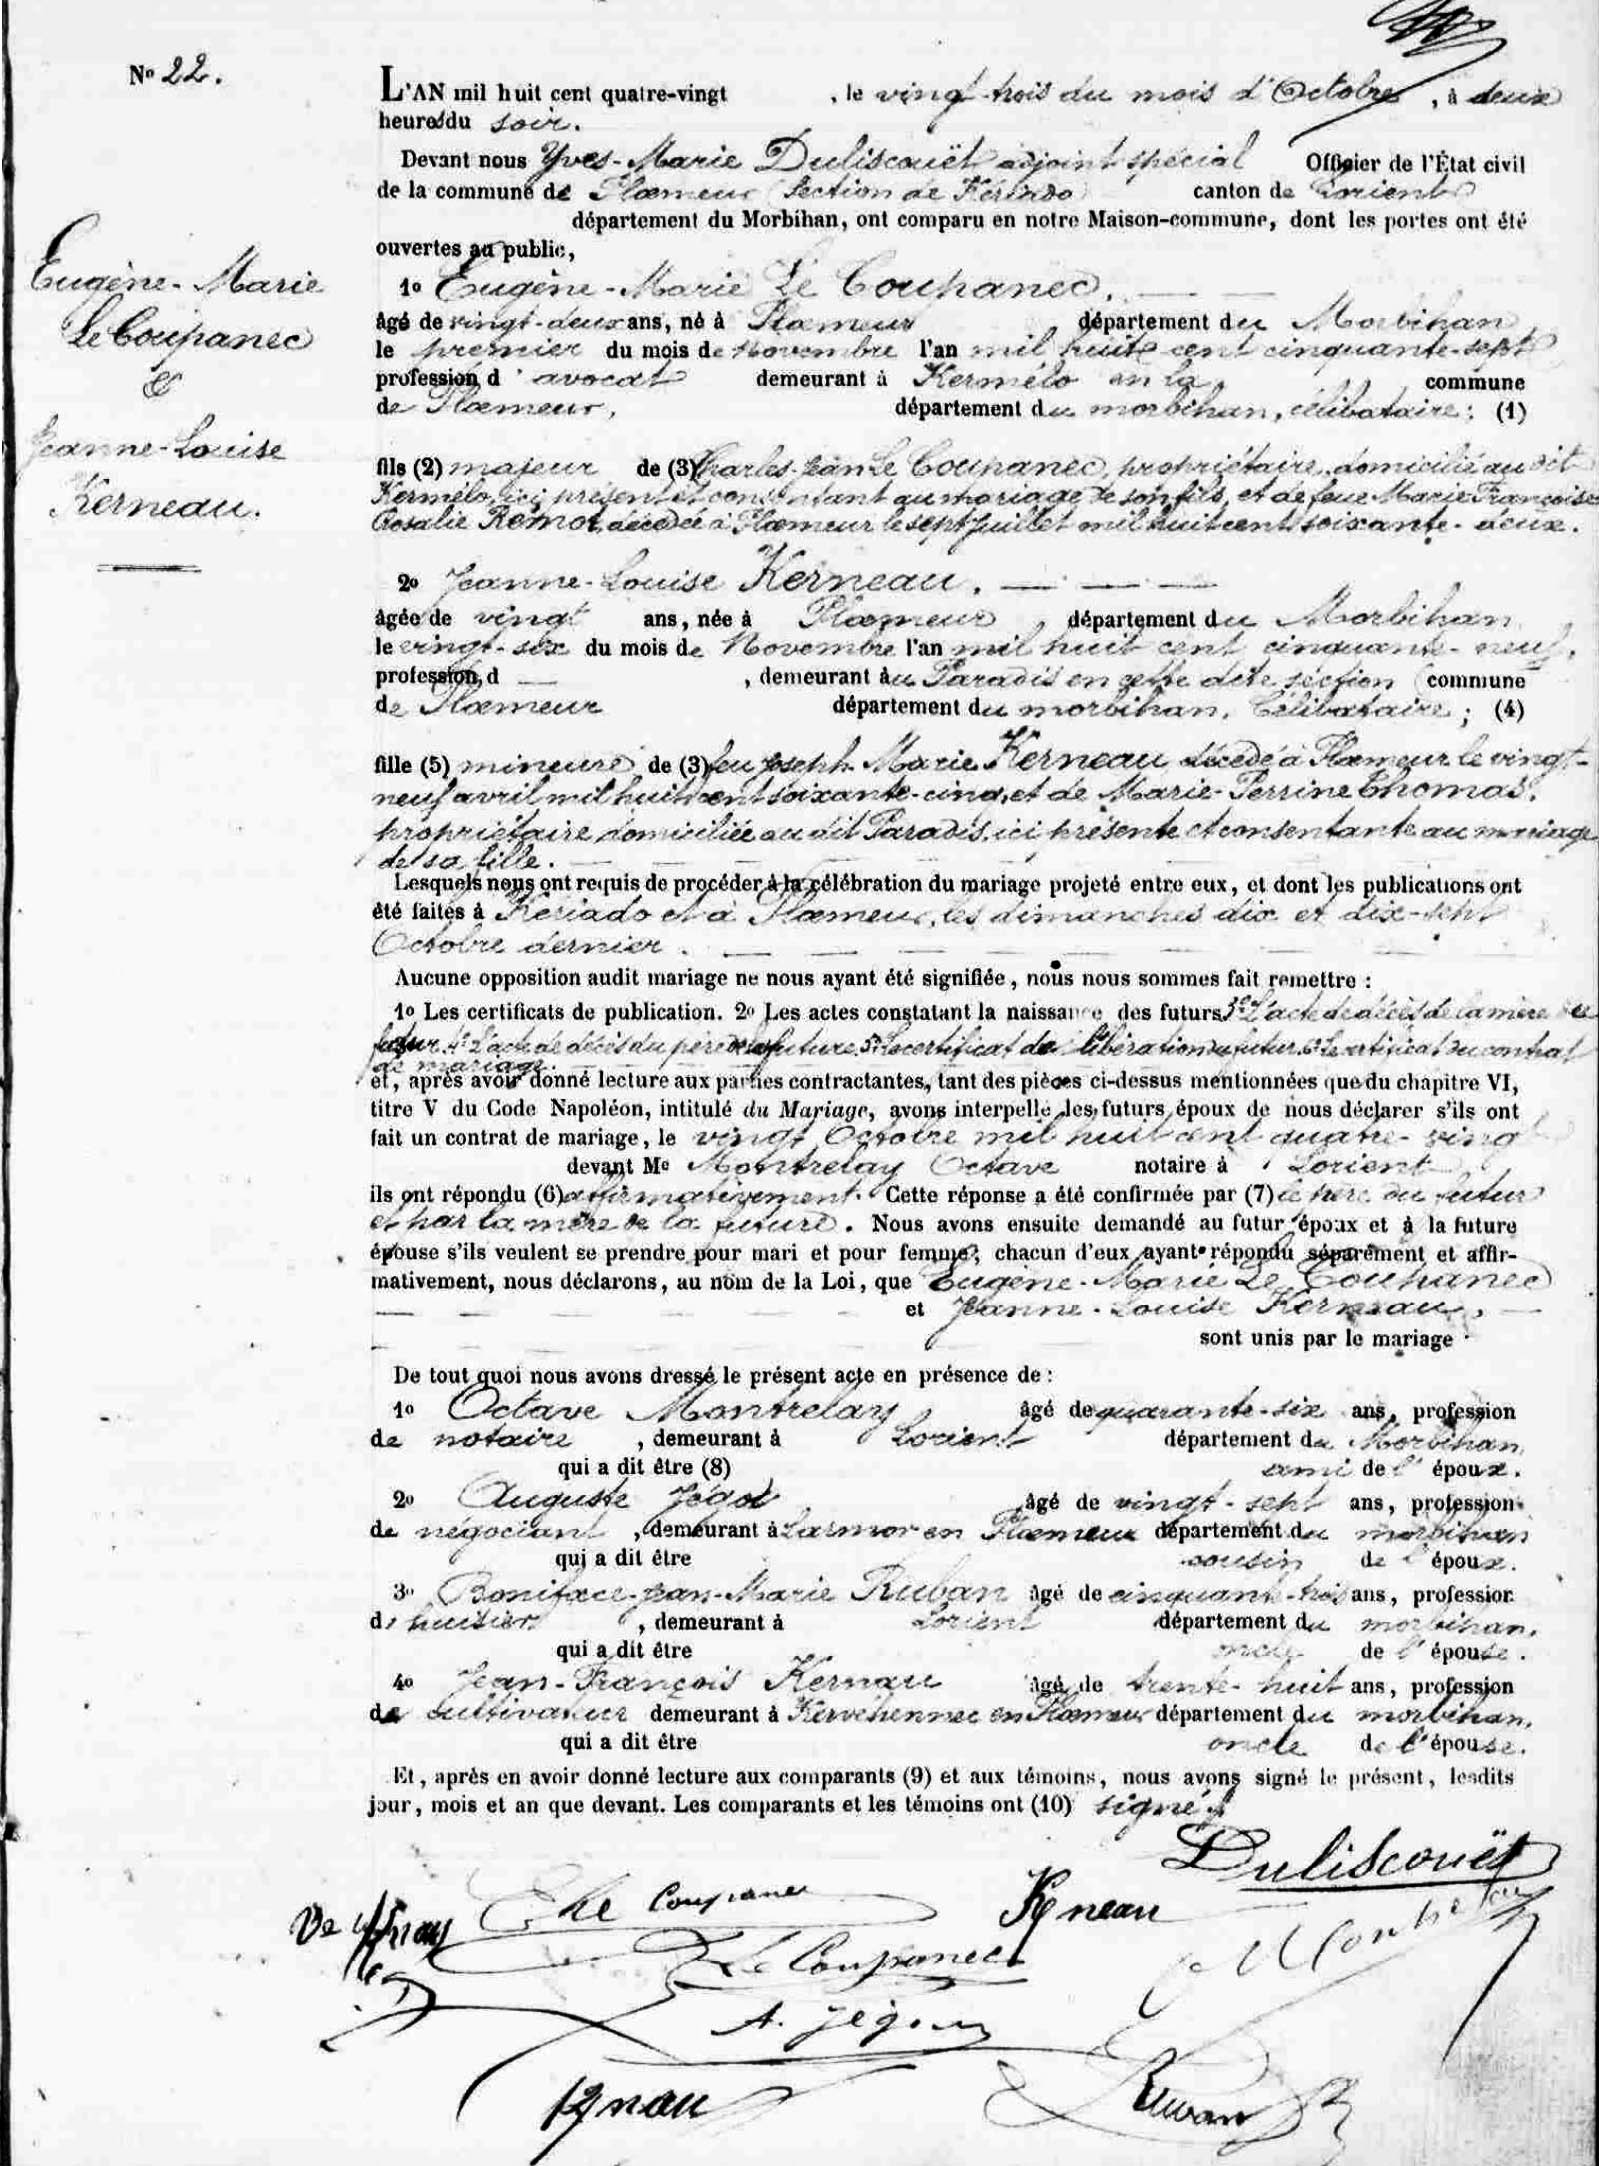 No 22.
L'AN mil huit cent quatre-vingt , le vingt-trois du mois d'Octobre , à deux
heures du soir.
Devant nous Yves-Marie Duliscouët adjoint spécial Officier de l'État civil
de la commune de Plœmeur (Section de Kériado) canton de Lorient
département du Morbihan, ont comparu en notre Maison-commune, dont les portes ont été
ouvertes au public,
Eugène-Marie
Le Coupanec
&
Jeanne-Louise
Kerneau.
1o Eugène-Marie Le Coupanec.
âgé de vingt-deux ans, né à Plœmeur département du Morbihan
le premier du mois de Novembre l'an mil huit cent cinquante-sept
profession d'avocat demeurant à Kermélo en la commune
de Plœmeur, département du morbihan, célibataire; (1)
fils (2) majeur de (3) Charles-Jean Le Coupanec, propriétaire, domicilié au dit
Kermélo, ici présent et consentant au mariage de son fils, et de feue Marie Françoise
Rosalie Rémot, décédée à Plœmeur le sept Juillet mil huit cent soixante-deux.
2o Jeanne-Louise Kerneau.
âgée de vingt ans, née à Plœmeur département du Morbihan
le vingt-six du mois de Novembre l'an mil huit cent cinquante-neuf,
profession d , demeurant au Paradis en cette dite section (commune
de Plœmeur département du morbihan. Célibataire; (4)
fille (5) mineure de (3) feu Joseph Marie Kerneau décédé à Plœmeur le vingt-
neuf avril mil huit cent soixante-cinq, et de Marie-Perrine Thomas,
propriétaire domiciliée au dit Paradis, ici présente et consentante au mariage
de sa fille.
Lesquels nous ont requis de procéder à la célébration du mariage projeté entre eux, et dont les publications ont
été faites à Kériado et à Plœmeur, les dimanches dix et dix-sept
Octobre dernier.
Aucune opposition audit mariage ne nous ayant été signifiée, nous nous sommes fait remettre :
1o Les certificats de publication. 2o Les actes constatant la naissance des futurs 3o L'acte de décès de la mère du
futur. 4o L'acte de décès du père de la future. 5o Le certificat de libération du futur. 6o Le certificat du contrat
de mariage.
et, après avoir donné lecture aux parties contractantes, tant des pièces ci-dessus mentionnées que du chapitre VI,
titre V du Code Napoléon, intitulé du Mariage, avons interpellé les futurs époux de nous déclarer s'ils ont
fait un contrat de mariage, le vingt Octobre mil huit cent quatre-vingt
devant Me Montrelay Octave notaire à Lorient
ils ont répondu (6) affirmativement. Cette réponse a été confirmée par (7) le père du futur
et par la mère de la future. Nous avons ensuite demandé au futur époux et à la future
épouse s'ils veulent se prendre pour mari et pour femme; chacun d'eux ayant répondu séparément et affir-
mativement, nous déclarons, au nom de la Loi, que Eugène-Marie Le Coupanec
et Jeanne-Louise Kerneau,
sont unis par le mariage
De tout quoi nous avons dressé le présent acte en présence de :
1o Octave Montrelay âgé de quarante-six ans, profession
de notaire , demeurant à Lorient département du Morbihan,
qui a dit être (8) ami de l'époux.
2o Auguste Jégo âgé de vingt-sept ans, profession
de négociant , demeurant à Larmor en Plœmeur département du morbihan
qui a dit être cousin de l'époux.
3o Boniface-Jean-Marie Ruban âgé de cinquante-trois ans, profession
d'huisier , demeurant à Lorient département du morbihan,
qui a dit être oncle de l'épouse.
4o Jean-François Kernau âgé de trente-huit ans, profession
de cultivateur demeurant à Kervéhennec en Plœmeur département du morbihan,
qui a dit être oncle de l'épouse.
Et, après en avoir donné lecture aux comparants (9) et aux témoins, nous avons signé le présent, lesdits
jour, mois et an que devant. Les comparants et les témoins ont (10) signé.
Duliscouët
E Le Coupanec
Kneau
Montrelay
Le Coupanec
A. Jégo
Ruban